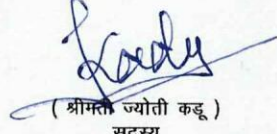 ( श्रीमती ज्योती कडू )
सदस्य